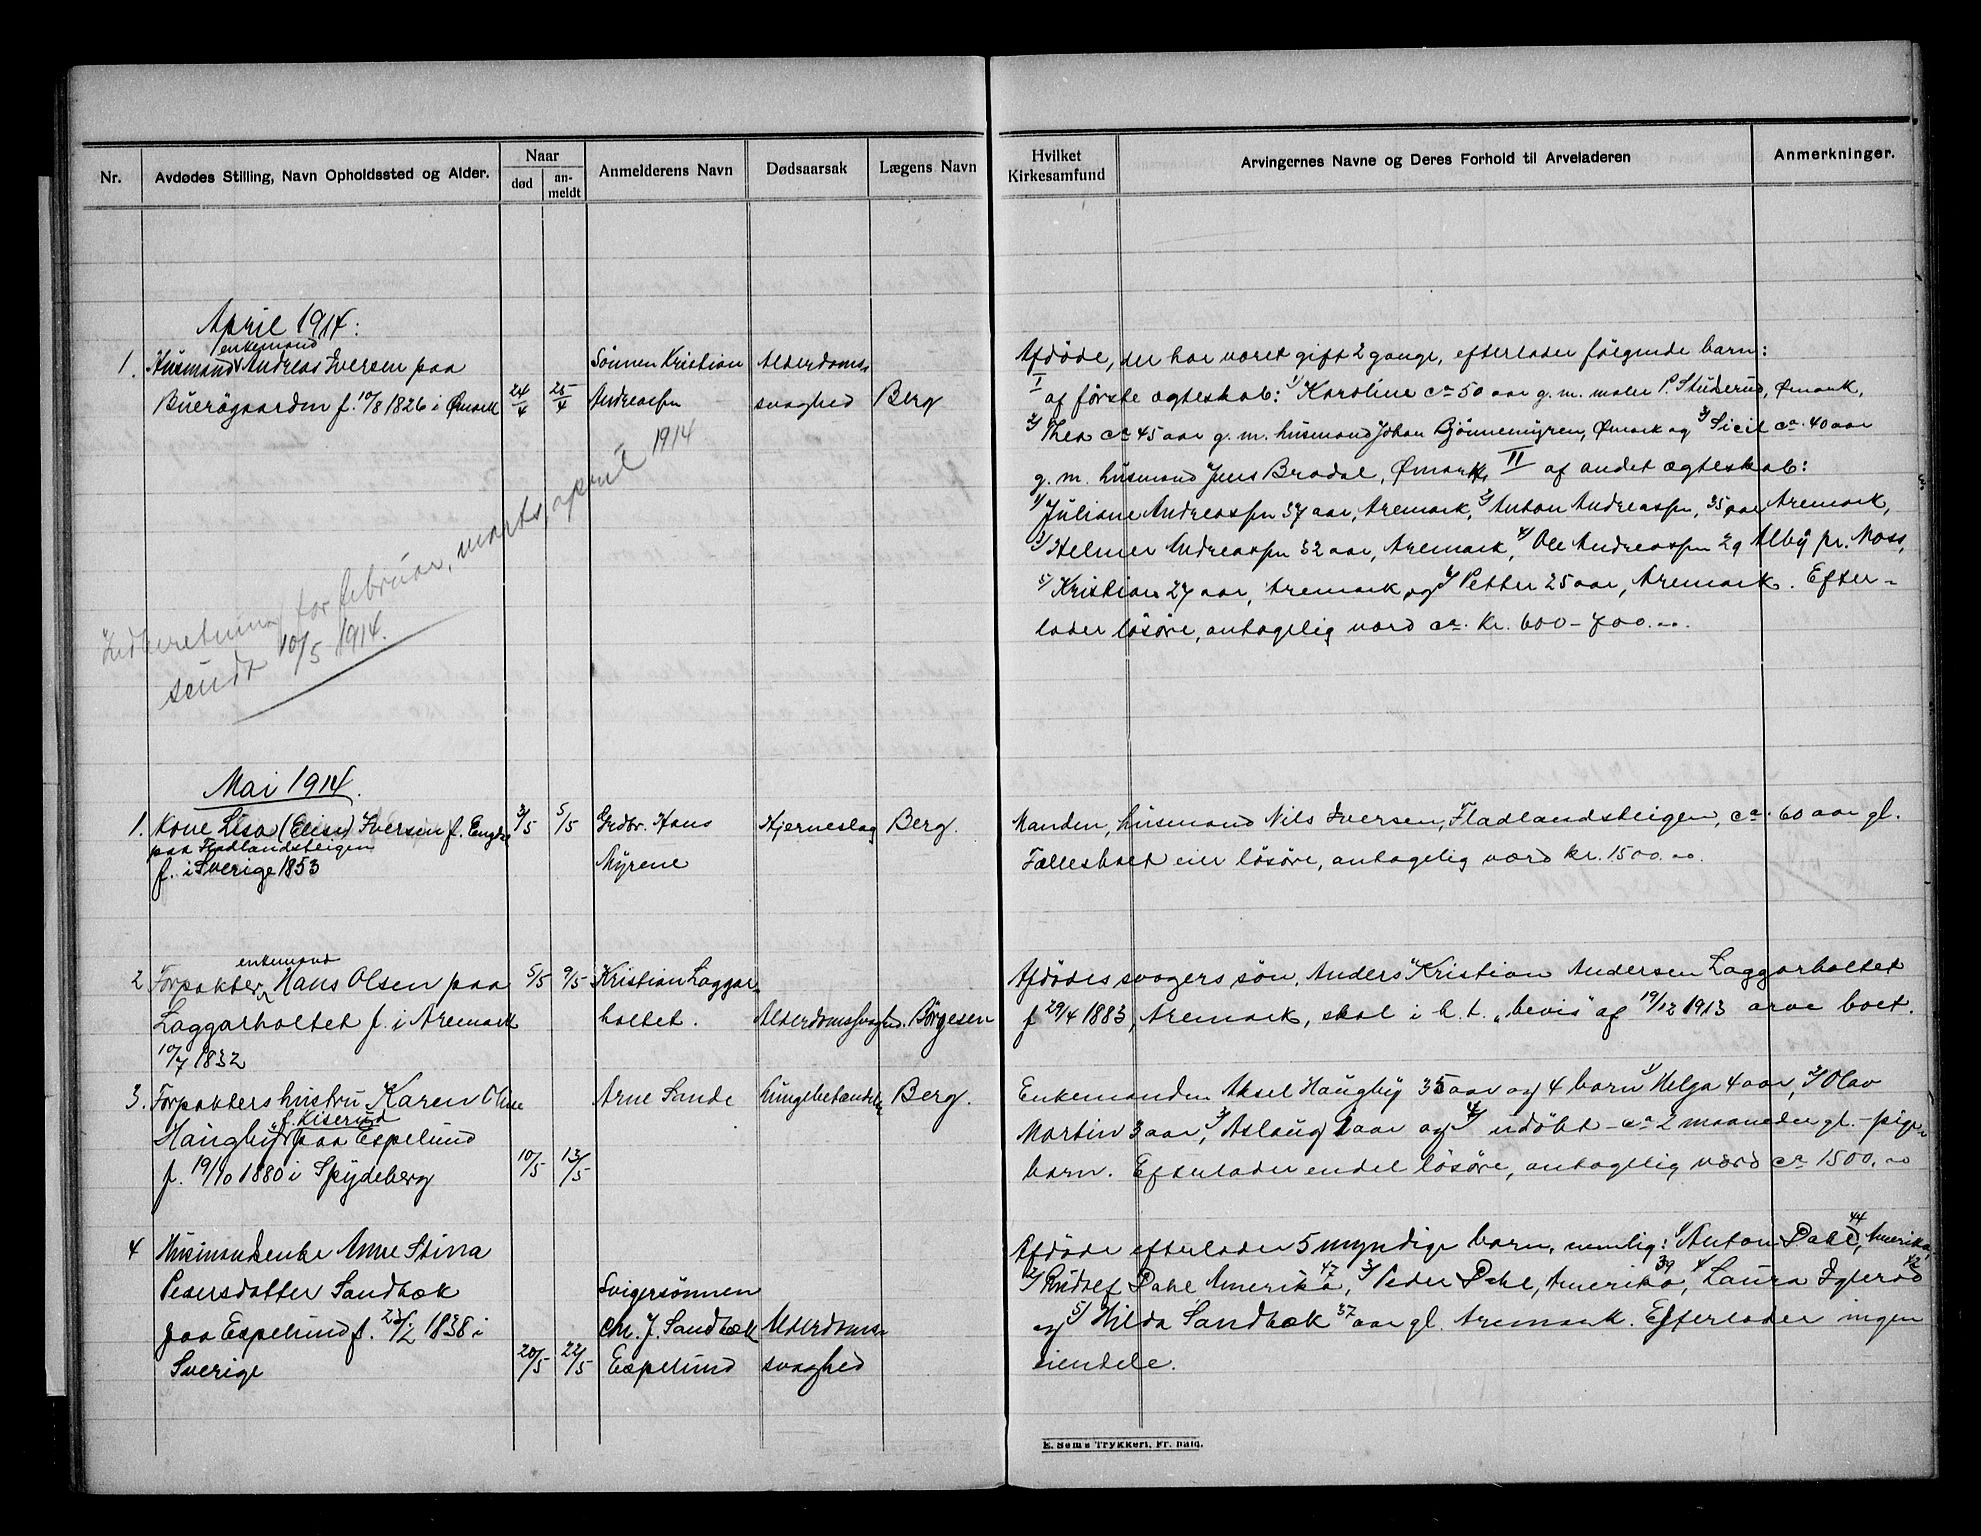 Nr.
Avdødes Stilling, Navn Opholdssted og Alder.
Naar
død
an-
meldt
Anmelderens Navn
Dødsaarsak
Lægens Navn
Hvilket
Kirkesamfund
Arvingernes Navne og Deres Forhold til Arveladeren
Anmerkninger.
April 1914:
enkemand
1. Husmand Andreas Iversen paa
Buerøgaarden f. 10/8 1826 i Ømark
24/4 25/4
Sønnen Kristian
Andreassen
Alderdoms-
svaghed
Berg
Afdøde, der har været gift 2 gange, efterlader følgende barn:
I af første ægteskab: 1/ Karoline ca 50 aar g. m. maler P. Studerud, Ømark,
2/ Thea ca 45 aar g. m. husmand Johan Bjønnemyren, Ømark og 3/ Sicil ca. 40 aar
g. m. husmand Jens Bradal, Ømark, II af andet ægteskab:
1/ Juliane Andreassen 37 aar, Aremark, 2/ Anton Andreassen, 35 aar Aremark,
3/ Helmer Andreassen 32 aar, Aremark, 4/ Ole Andreassen 29 Alby pr. Moss,
5/ Kristian 27 aar, Aremark og 6/ Petter 25 aar, Aremark. Efter-
lader løsøre, antagelig værd ca. kr. 600-700.00.
Indberetning for februar, marts, april 1914
sendt 10/5 1914.
Mai 1914.
1. Kone Lisa (Elise) Iversen f.
paa Fladlandsteigen
f. i Sverige 1853
3/5 5/5
Grdbr. Hans
Myrene
Hjerneslag
Berg.
Manden, husmand Nils Iversen, Fladlandsteigen, ca. 60 aar gl.
Fællesboet eier løsøre, antagelig værd kr. 1500.00.
enkemand
2 Forpakter, Hans Olsen paa
Laggarholtet f. i Aremark
10/7 1832
5/5 9/5
Kristian Laggar-
holtet.
Alderdomssvaghed.
Børgesen
Afdødes svogers søn, Anders Kristian Andersen Laggarholtet
f 29/4 1883, Aremark, skal i h. t. "bevis" af 19/12 1913 arve boet.
3. Forpakters hustru Karen Oline
f. Kiserud
Haugby paa Espelund
f. 19/10 1880 i Spydeberg
10/5 13/5
Arne Sande
Lungebetændelse
Berg.
Enkemanden Aksel Haugby 35 aar og 4 barn 1/ Helga 4 aar, 2/ Olav
Martin 3 aar, 3/ Aslaug 2 aar og 4/ udøbt - ca 2 maaneder gl. - pige-
barn. Efterlader endel løsøre, antagelig værd ca 1500.00
4 Husmandsenke Anne Stina
Pedersdatter Sandbæk
paa Espelund f. 1838 i
Sverige
20/5 22/5
Svigersønnen
Chr. J. Sandbæk
Espelund
Alderdoms-
svaghed
Afdøde efterlader 5 myndige barn, nemlig: 1/ Anton Dahl 44, Amerika,
2/ Gudolf Dahl Amerika 47, 3/ Peder Dahl, Amerika 39, 4 Laura Iglerød 42
og 5/ Hilda Sandbæk 37 aar gl. Aremark. Efterlader ingen
eiendele.
E. Sem's Trykkeri, Fr.hald.